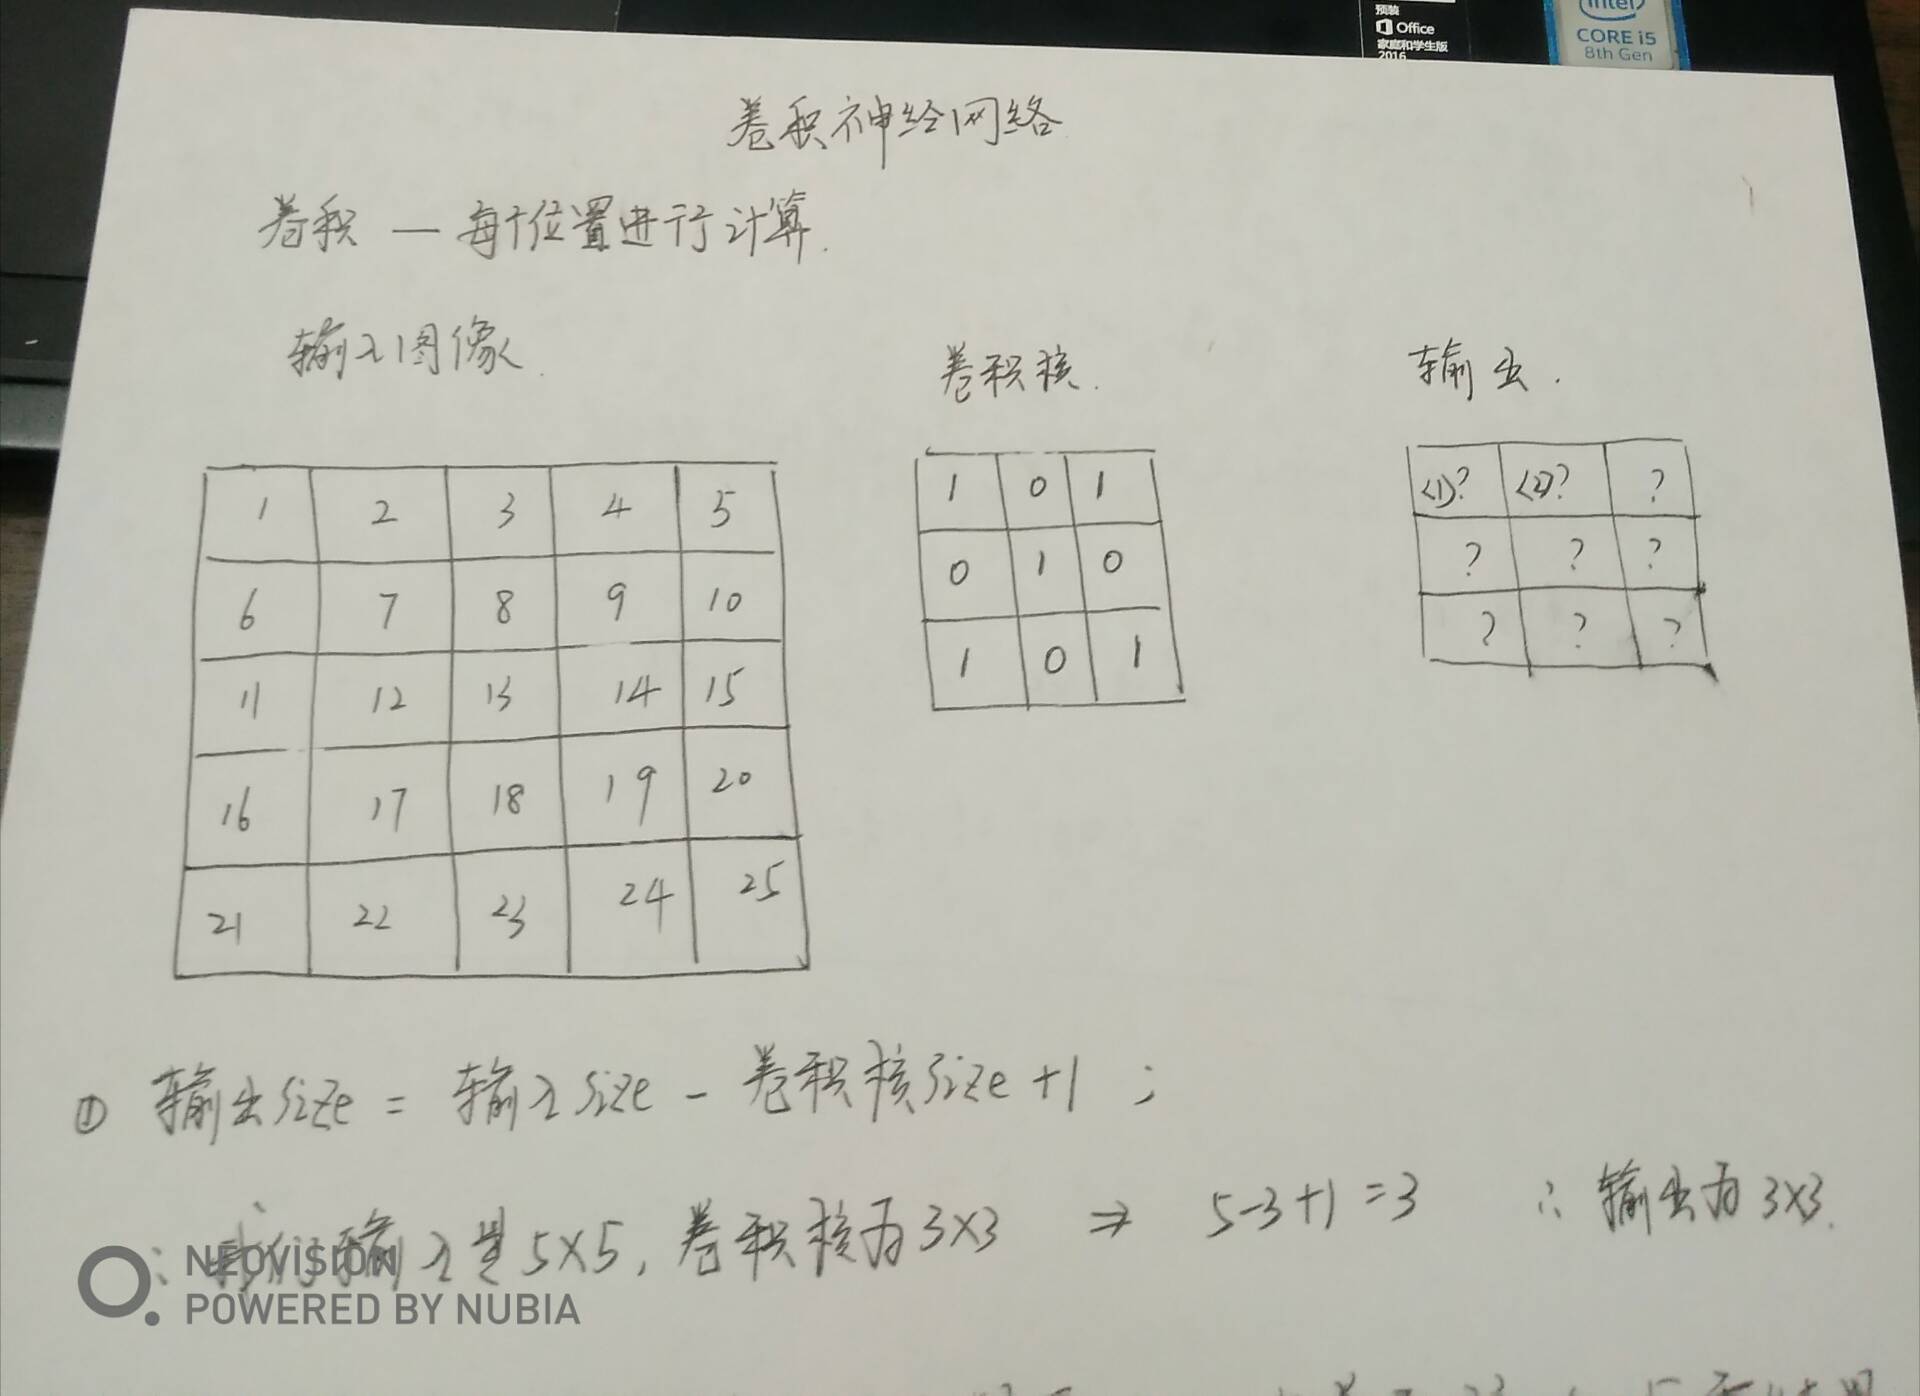 预装
Office
家庭和学生版
2016
intel
CORE i5
8th Gen
卷积神经网络
卷积 — 每个位置进行计算.
输入图像.
卷积核.
输出.
1 2 3 4 5
6 7 8 9 10
11 12 13 14 15
16 17 18 19 20
21 22 23 24 25
1 0 1
0 1 0
1 0 1
<1>? <2>? ?
? ? ?
? ? ?
① 输出size = 输入size - 卷积核size + 1 ;
∵ 我们输入是 5×5, 卷积核为 3×3 ⇒ 5-3+1=3 ∴ 输出为 3×3.
NEOVISION
POWERED BY NUBIA